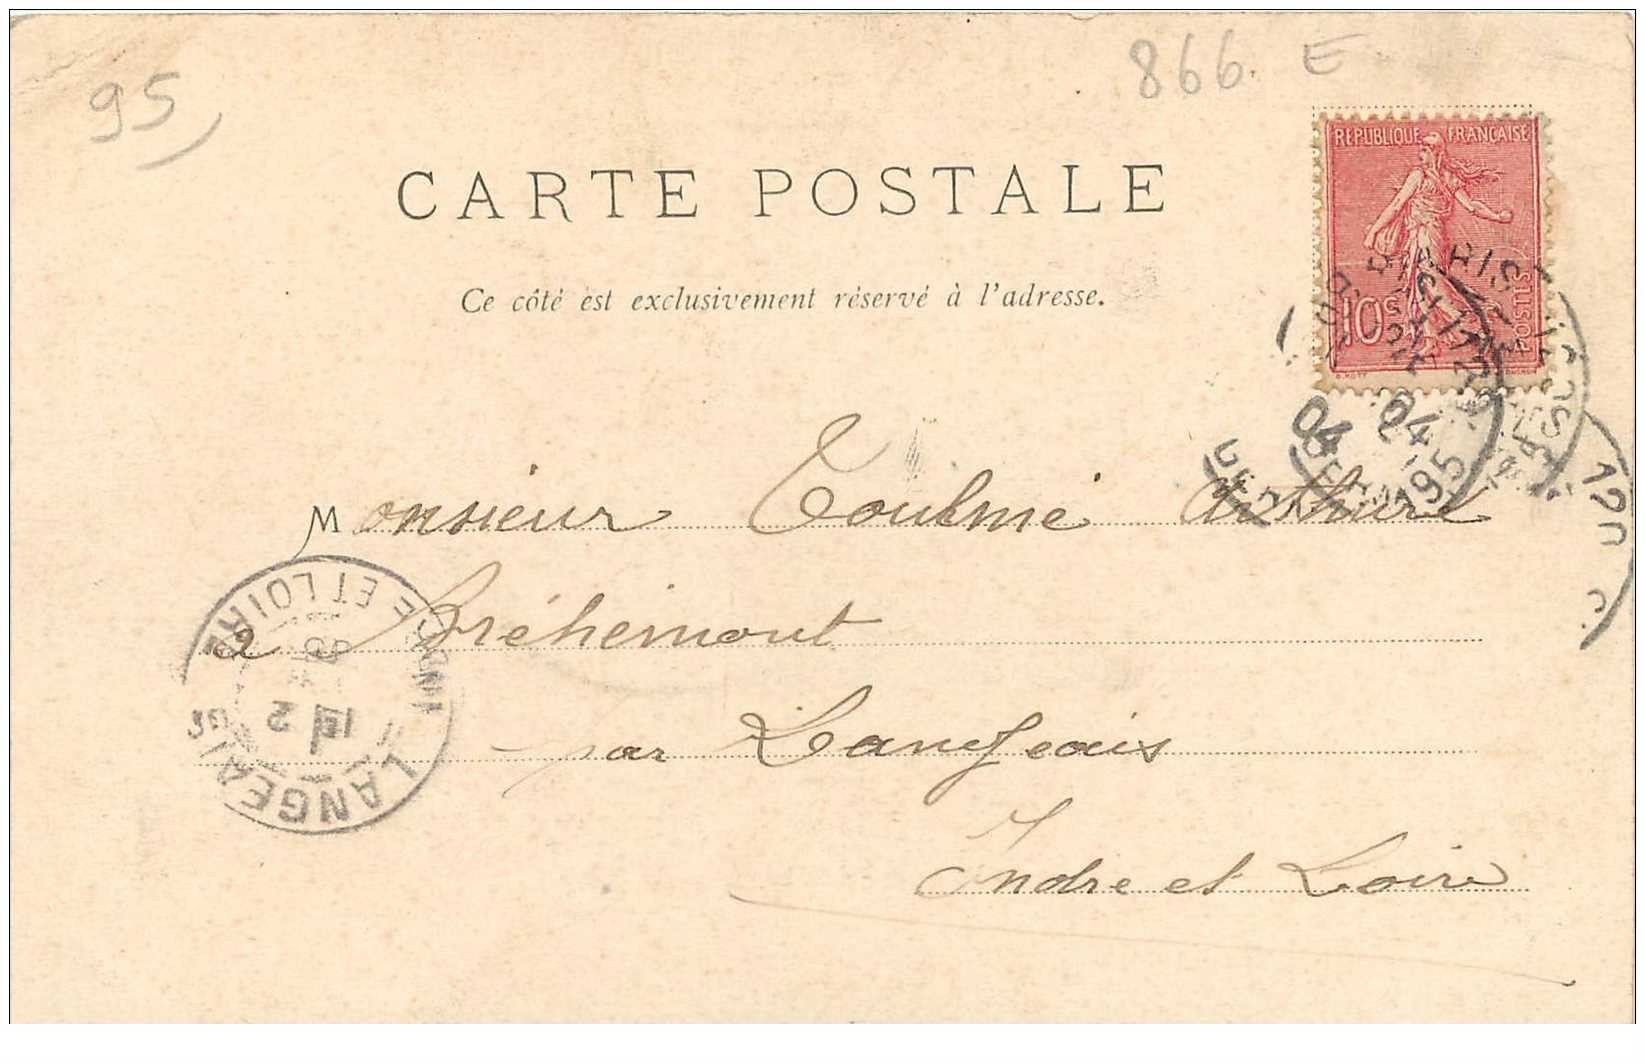 95
866 E
CARTE POSTALE
REPUBLIQUE FRANÇAISE
10c POSTES
Ce côté est exclusivement réservé à l'adresse.
04 04
Monsieur Toulmé Arthur
à Bréhémont
par Langeais
Indre et Loire
LANGEAIS
ET LOIRE